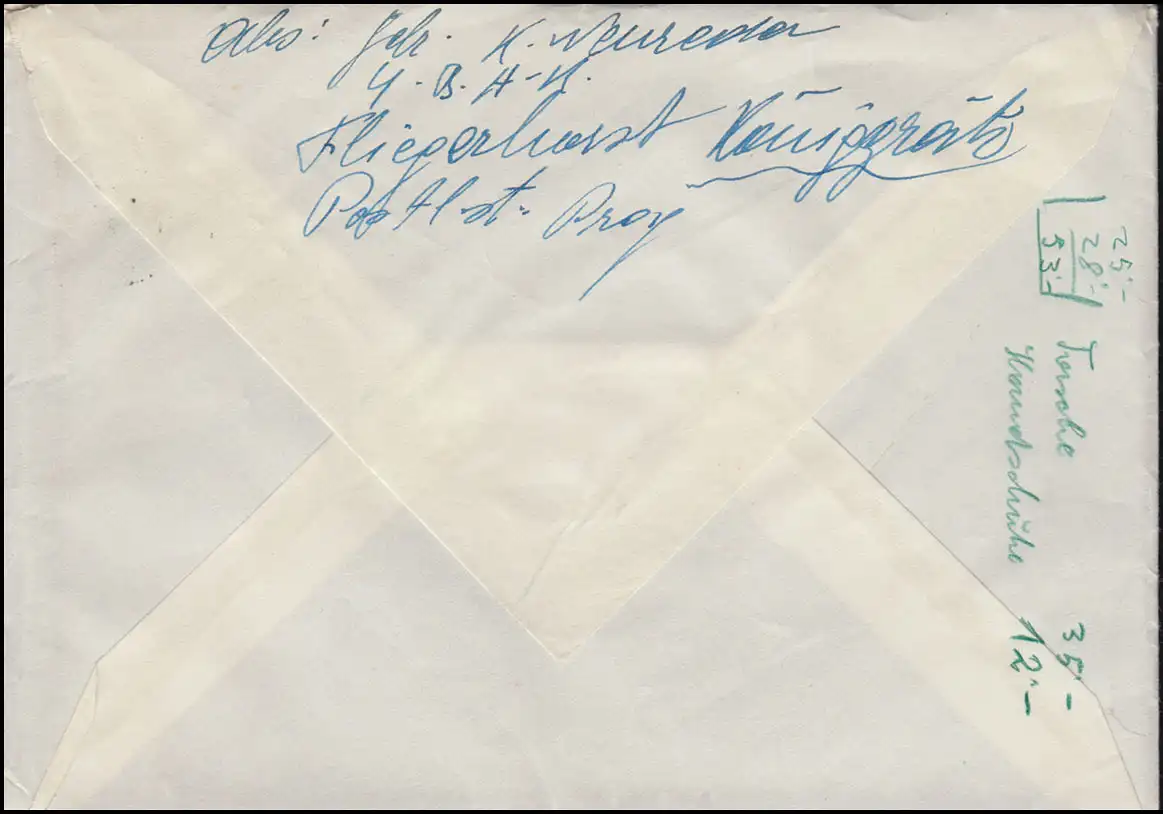 Abs: Gefr. K. Neureder
4. B. H-K.
Fliegerhorst Königgrätz
Postlst. Prag
25.-
28.-
53.-
Tasche 35.-
Handschuhe 12.-